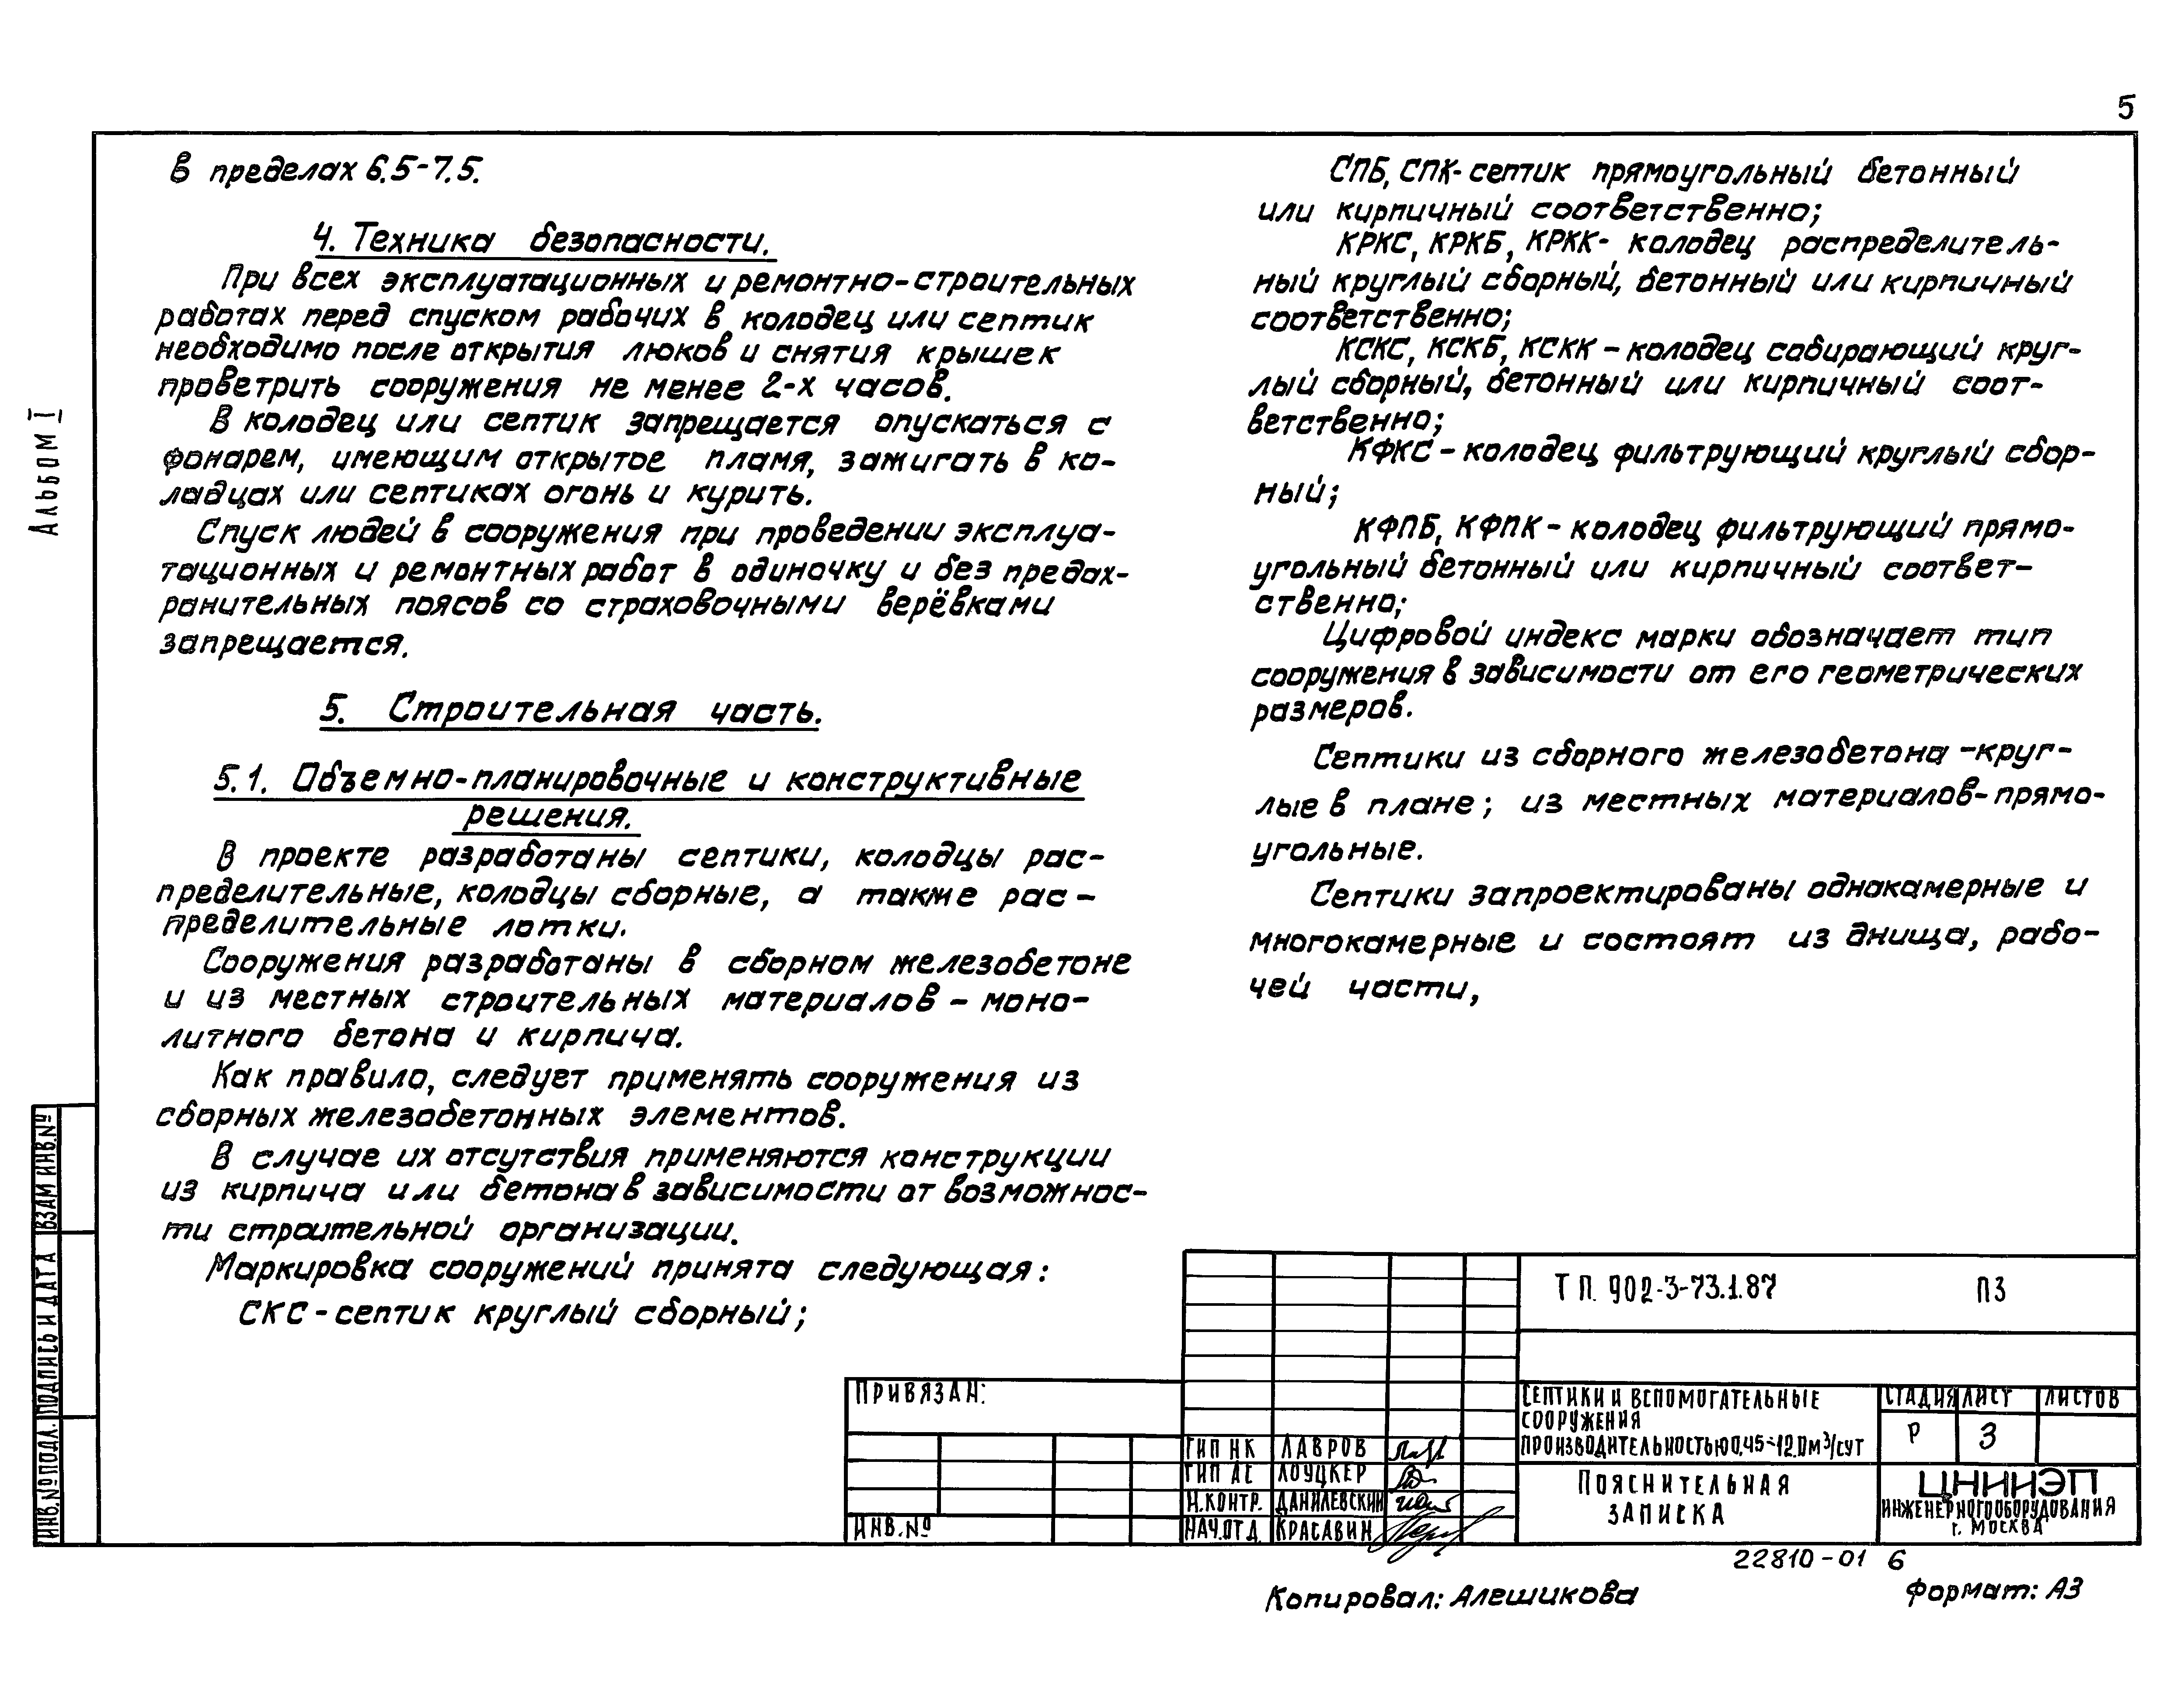 5
Альбом I
в пределах 6.5-7.5.
4. Техника безопасности.
При всех эксплуатационных и ремонтно-строительных
работах перед спуском рабочих в колодец или септик
необходимо после открытия люков и снятия крышек
проветрить сооружения не менее 2-х часов.
В колодец или септик запрещается опускаться с
фонарем, имеющим открытое пламя, зажигать в ко-
лодцах или септиках огонь и курить.
Спуск людей в сооружения при проведении эксплуа-
тационных и ремонтных работ в одиночку и без предох-
ранительных поясов со страховочными верёвками
запрещается.
5. Строительная часть.
5.1. Объемно-планировочные и конструктивные
решения.
В проекте разработаны септики, колодцы рас-
пределительные, колодцы сборные, а также рас-
пределительные лотки.
Сооружения разработаны в сборном железобетоне
и из местных строительных материалов - моно-
литного бетона и кирпича.
Как правило, следует применять сооружения из
сборных железобетонных элементов.
В случае их отсутствия применяются конструкции
из кирпича или бетона в зависимости от возможнос-
ти строительной организации.
Маркировка сооружений принята следующая:
СКС - септик круглый сборный;
СПБ, СПК - септик прямоугольный бетонный
или кирпичный соответственно;
КРКС, КРКБ, КРКК - колодец распределитель-
ный круглый сборный, бетонный или кирпичный
соответственно;
КСКС, КСКБ, КСКК - колодец собирающий круг-
лый сборный, бетонный или кирпичный соот-
ветственно;
КФКС - колодец фильтрующий круглый сбор-
ный;
КФПБ, КФПК - колодец фильтрующий прямо-
угольный бетонный или кирпичный соответ-
ственно;
Цифровой индекс марки обозначает тип
сооружения в зависимости от его геометрических
размеров.
Септики из сборного железобетона - круг-
лые в плане; из местных материалов - прямо-
угольные.
Септики запроектированы однокамерные и
многокамерные и состоят из днища, рабо-
чей части,
ИНВ.№ПОДЛ. ПОДПИСЬ И ДАТА ВЗАМ ИНВ.№
ПРИВЯЗАН:
ИНВ.№
ГИП НК ЛАВРОВ
ГИП АС ЛОУЦКЕР
Н.КОНТР. ДАНИЛЕВСКИЙ
НАЧ.ОТД. КРАСАВИН
ТП. 902-3-73.1.87 ПЗ
СЕПТИКИ И ВСПОМОГАТЕЛЬНЫЕ
СООРУЖЕНИЯ
ПРОИЗВОДИТЕЛЬНОСТЬЮ 0.45÷12.0м³/СУТ
СТАДИЯ ЛИСТ ЛИСТОВ
Р 3
ПОЯСНИТЕЛЬНАЯ
ЗАПИСКА
ЦНИИЭП
ИНЖЕНЕРНОГО ОБОРУДОВАНИЯ
Г. МОСКВА
22810-01 6
Копировал: Алешикова
Формат: А3